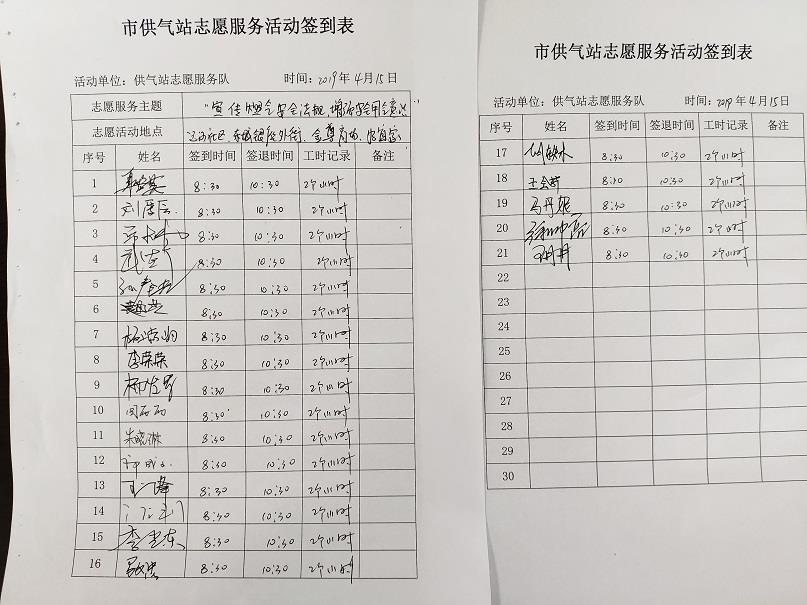 市供气站志愿服务活动签到表
活动单位：供气站志愿服务队 时间：2019年4月15日
志愿服务主题 "宣传燃气安全法规,增强安全用气意识
志愿活动地点
序号 姓名 签到时间 签退时间 工时记录 备注
1 8:30 10:30 2个小时
2 8:30 10:30 2个小时
3 8:30 10:30 2个小时
4 8:30 10:30 2个小时
5 8:30 10:30 2个小时
6 8:30 10:30 2个小时
7 8:30 10:30 2个小时
8 李荣荣 8:30 10:30 2个小时
9 8:30 10:30 2个小时
10 8:30 10:30 2个小时
11 朱晓琳 8:30 10:30 2个小时
12 8:30 10:30 2个小时
13 8:30 10:30 2个小时
14 8:30 10:30 2个小时
15 8:30 10:30 2个小时
16 8:30 10:30 2个小时
市供气站志愿服务活动签到表
活动单位：供气站志愿服务队 时间：2019年4月15日
序号 姓名 签到时间 签退时间 工时记录 备注
17 8:30 10:30 2个小时
18 8:30 10:30 2个小时
19 马丹妮 8:30 10:30 2个小时
20 8:30 10:30 2个小时
21 8:30 10:30 2个小时
22
23
24
25
26
27
28
29
30